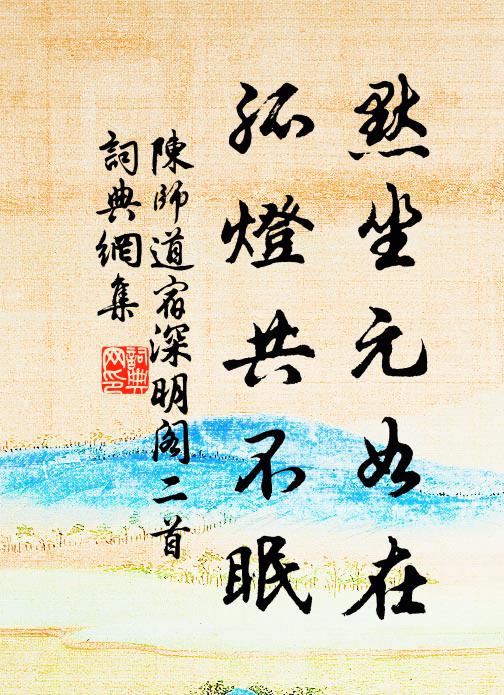 默坐元如在
孤燈共不眠
陳師道宿深明阁二首
詞典網集
詞典网印